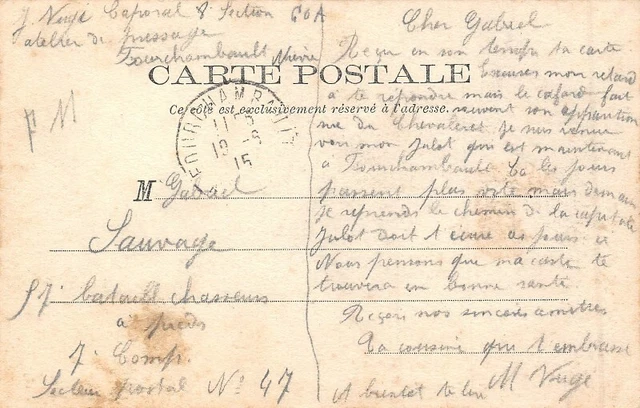 J. Vergé Caporal 8e Section COA
atelier de
Fourchambault Nièvre
CARTE POSTALE
Ce côté est exclusivement réservé à l'adresse.
FM
FOURCHAMBAULT
15
M Gabriel
Sauvage
57e bataill chasseurs
à pieds
7e Comp.
Secteur postal No 47
Cher Gabriel
Reçu en son temps ta carte
Excuses mon retard
à te répondre mais le cafard fait
souvent son apparition
rue du Chevaleret. Je suis venue
voir mon Julot qui est maintenant
à Fourchambault. les jours
passent plus vite mais demain
je reprends le chemin de la capitale
Julot doit t'écrire ces jours ci
Nous pensons que ma carte te
trouvera en bonne santé.
Reçois nos sincères amitiés
Ta cousine qui t'embrasse
M Vergé
A bientôt te lire